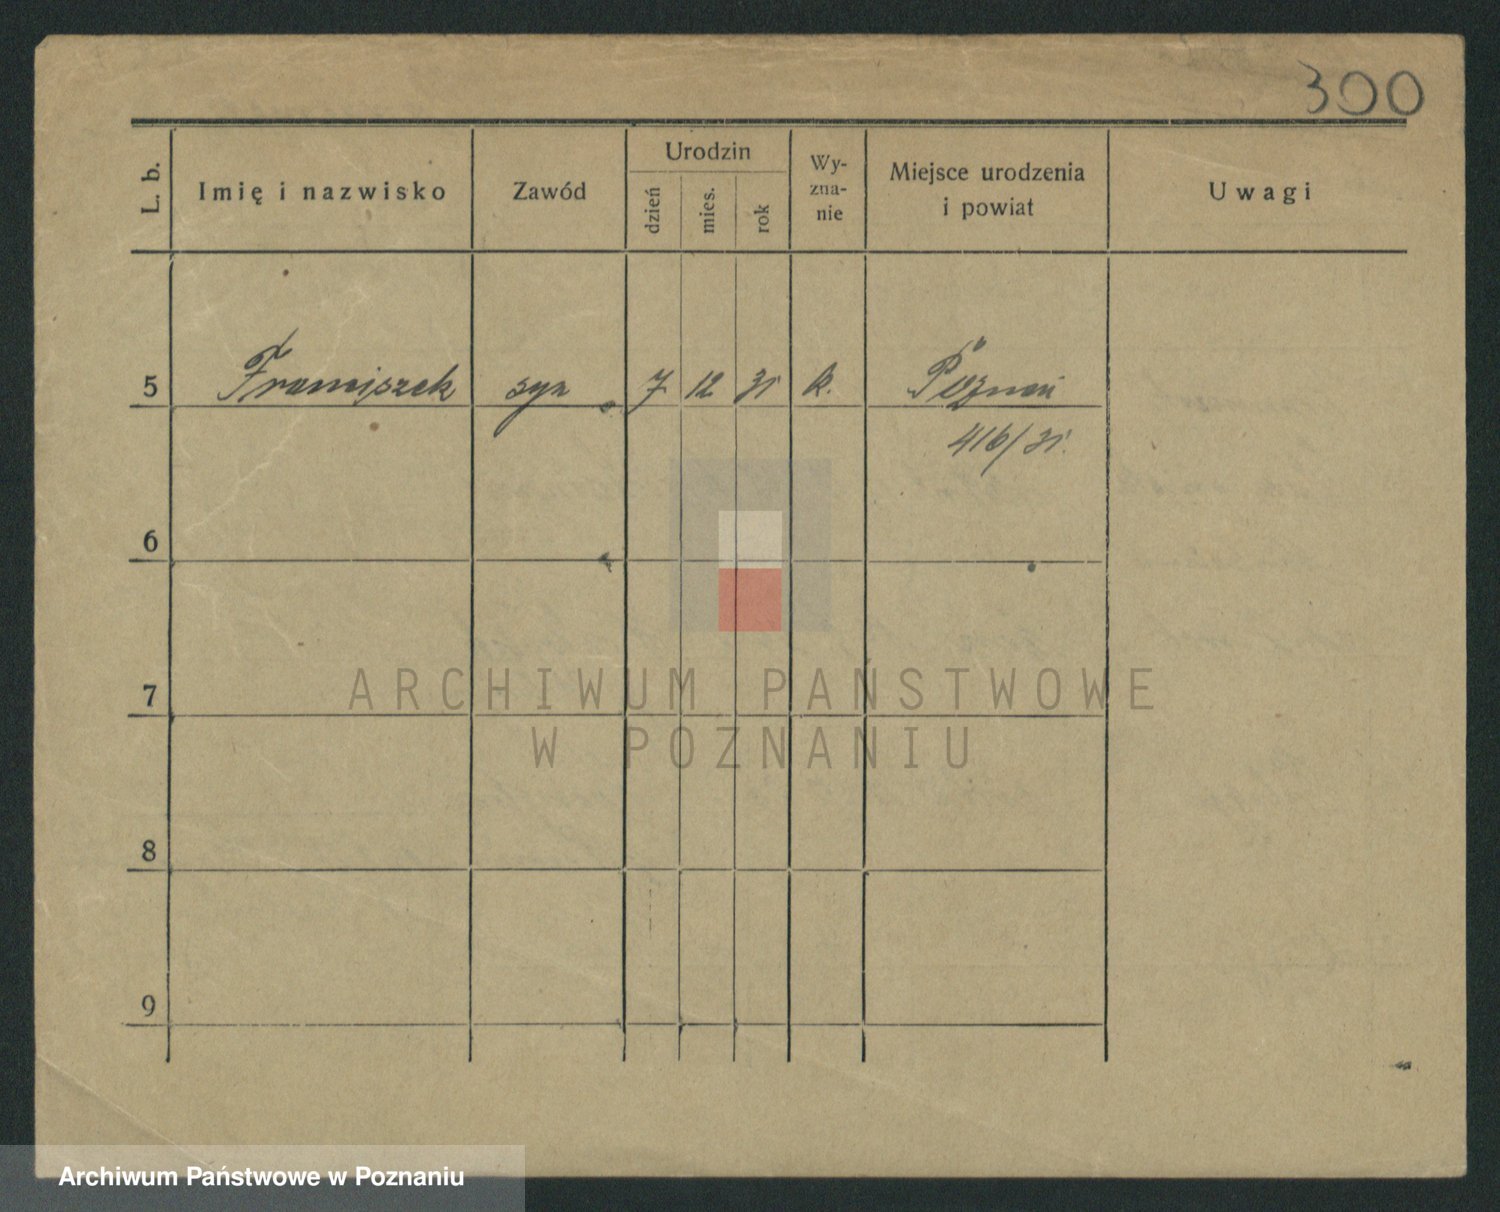 300
L. b. Imię i nazwisko Zawód Urodzin dzień mies. rok Wy-zna-nie Miejsce urodzenia i powiat Uwagi
5 Franciszek syn 7 12 31 k. Poznań
416/31.
6
7
8
9
ARCHIWUM PAŃSTWOWE
W POZNANIU
Archiwum Państwowe w Poznaniu